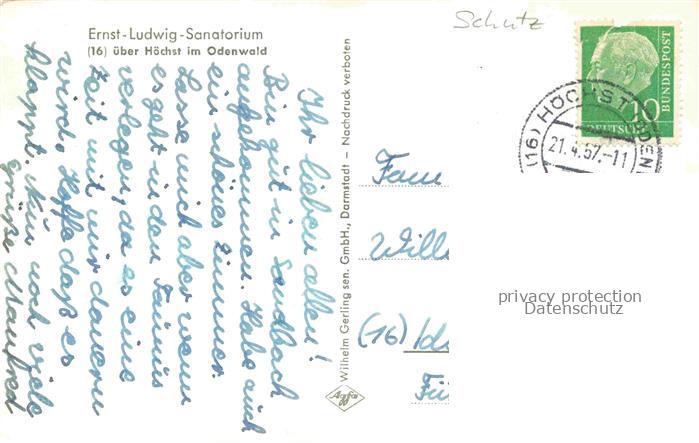 Ernst-Ludwig-Sanatorium
(16) über Höchst im Odenwald
Schütz
DEUTSCHE
BUNDESPOST
10
(16) HÖCHST
21.4.57.-11
Ihr lieben allen!
Bin gut in Sandbach
angekommen. Habe auch
ein schönes Zimmer.
Lasse mich aber wenn
es geht in den Taunus
verlegen, da es eine
Zeit mit mir dauern
wird. Hoffe daß es
klappt. Nun noch viele
grüße Manfred
Wilhelm Gerling sen. GmbH., Darmstadt – Nachdruck verboten
Agfa
Fam
Will
(16) Ids
privacy protection
Datenschutz